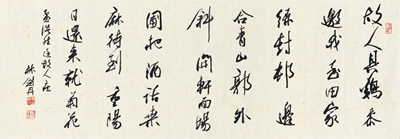 故人具鷄黍
邀我至田家
綠樹邨邊
合青山郭外
斜開軒面場
圃把酒話桑
麻待到重陽
日還來就菊花
孟浩然過故人庄
林劍丹